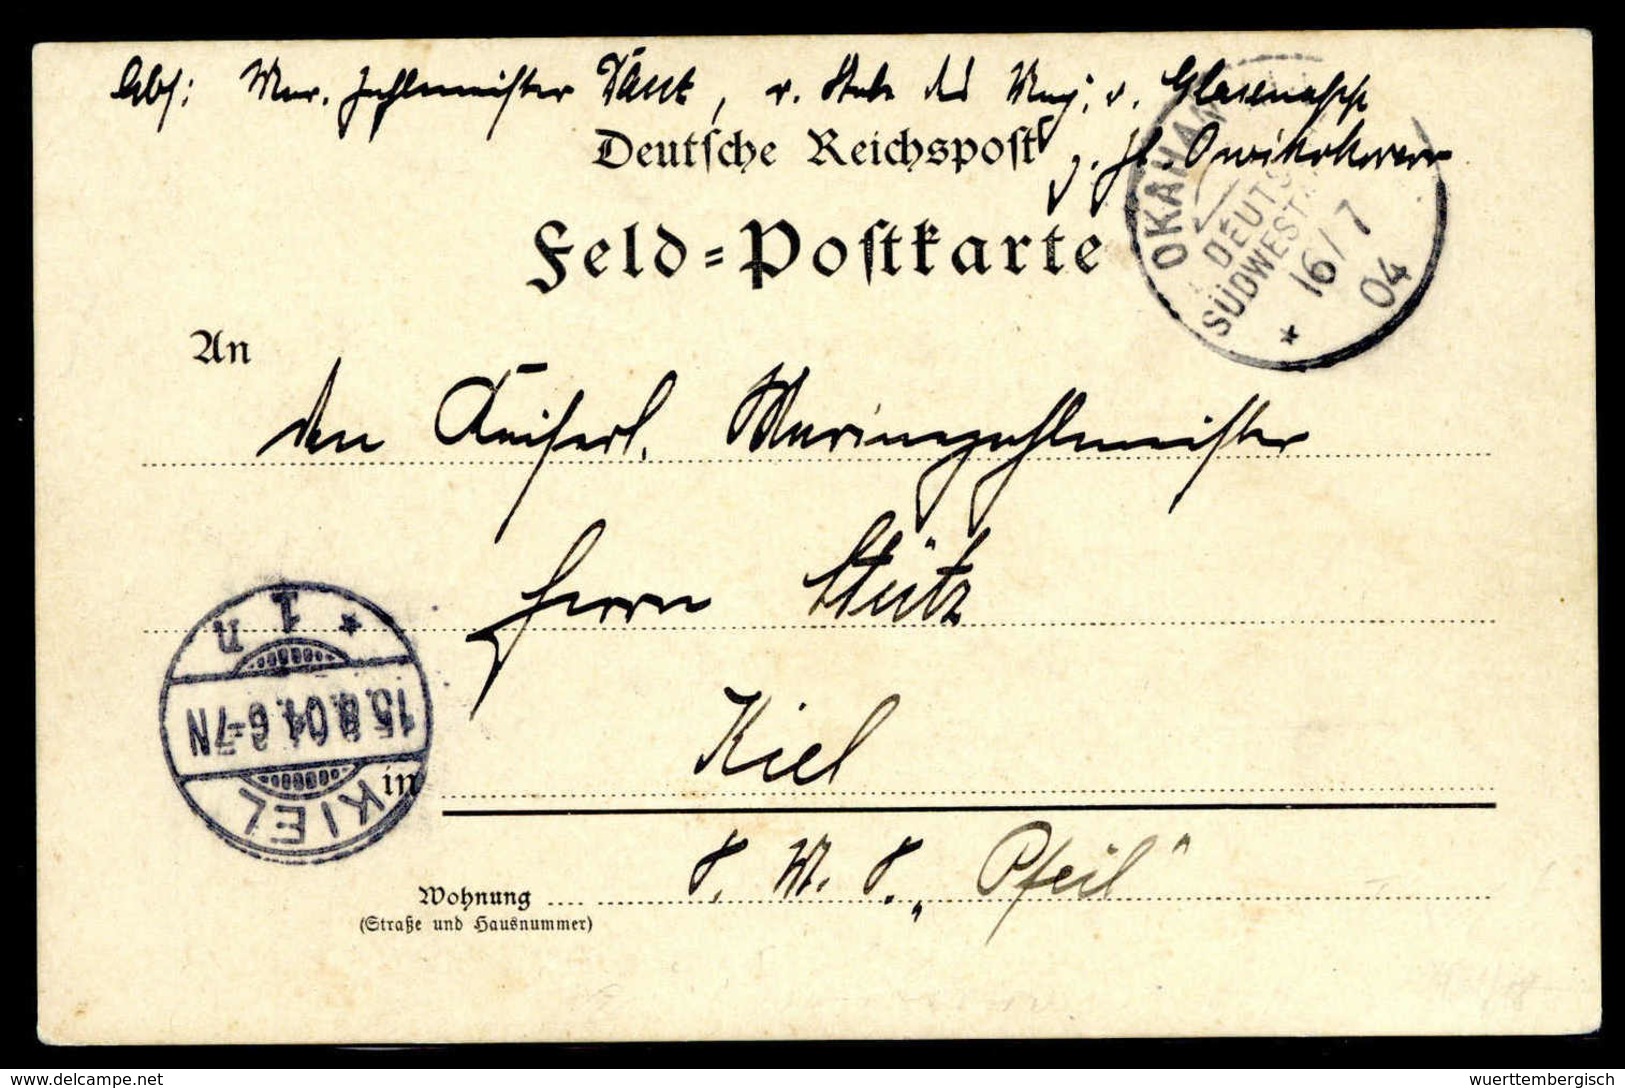 Abs: Mar. Zahlmeister Tänt, v. Stabe des Maj. v. Glasenapp
Deutsche Reichspost z. Zt. Owikokorero
Feld=Postkarte
OKAHAN
DEUTS
SÜDWEST
16/7
04
An
den Kaiserl. Marinezahlmeister
Herrn Stütz
Kiel
in
KIEL
15.8.04.6-7N
* 1 n
S. M. S. „Pfeil"
Wohnung
(Straße und Hausnummer)
wuerttembergisch